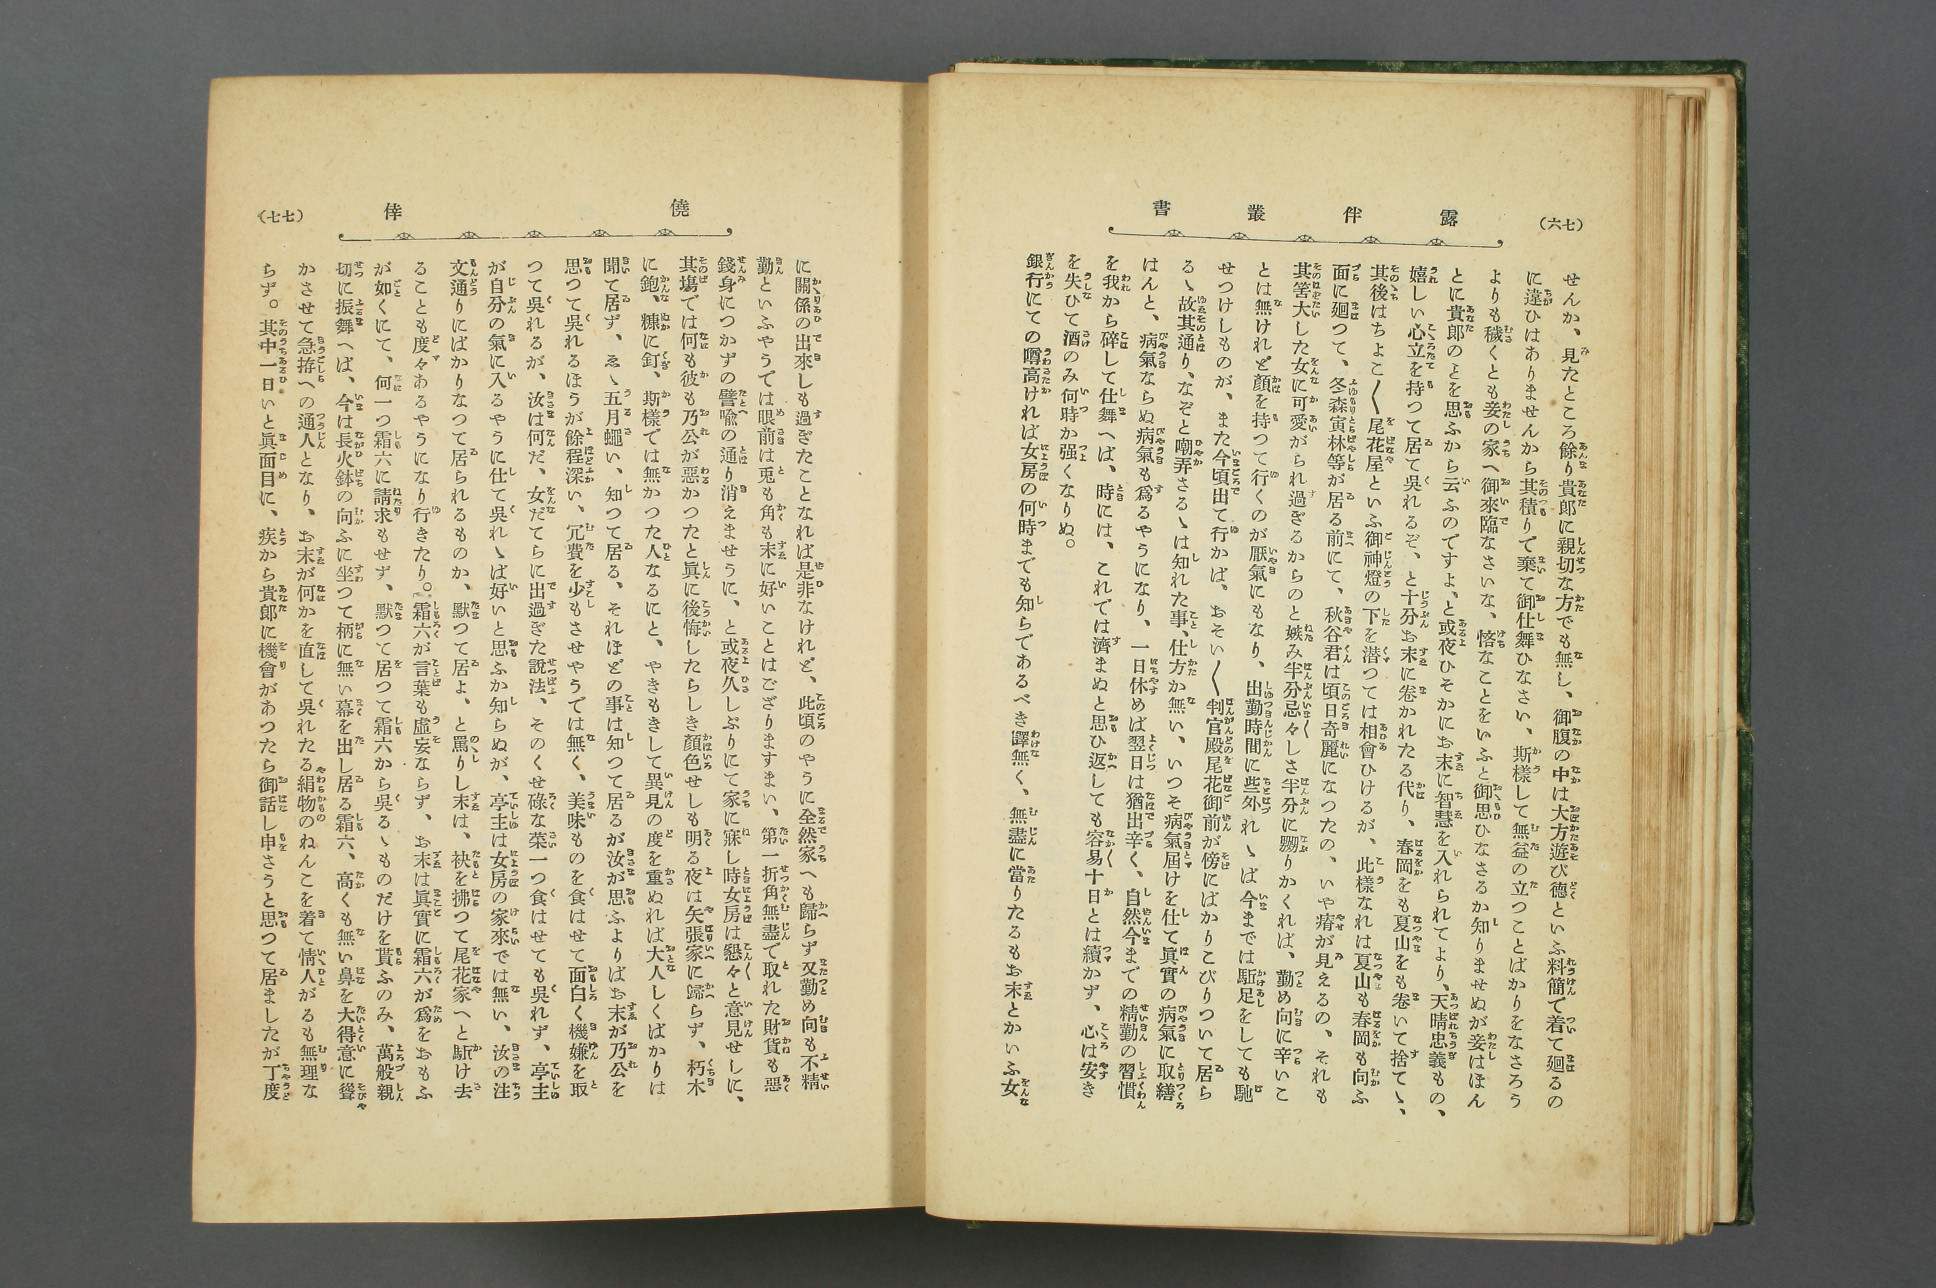 (七六)
露伴叢書
せんか、見たところ餘り貴郎に親切な方でも無し、御腹の中は大方遊び徳といふ料簡で着て廻るの
に違ひはありませんから其積りで棄て御仕舞ひなさい、斯樣して無益の立つことばかりをなさろう
よりも穢くとも妾の家へ御來臨なさいな、悋なことをいふと御思ひなさるか知りませぬが妾はほん
とに貴郎のことを思ふから云ふのですよ、と或夜ひそかにお末に智慧を入れられてより、天晴忠義もの、
嬉しい心立を持つて居て吳れるぞ、と十分お末に卷かれたる代り、春岡をも夏山をも卷いて捨てゝ、
其後はちよこ〳〵尾花屋といふ御神燈の下を潜つては相會ひけるが、此樣なれは夏山も春岡も向ふ
面に廻つて、冬森寅林等が居る前にて、秋谷君は頃日奇麗になつたの、いや瘠が見えるの、それも
其筈大した女に可愛がられ過ぎるからのと嫉み半分忌々しさ半分に嬲りかくれば、勤め向に辛いこ
とは無けれど顏を持つて行くのが厭氣にもなり、出勤時間に些外れゝば今までは駈足をしても馳
せつけしものが、また今頃出て行かば、おそい〳〵判官殿尾花御前が傍にばかりこびりついて居ら
るゝ故其通り、なぞと嘲弄さるゝは知れた事、仕方か無い、いつそ病氣屆けを仕て眞實の病氣に取繕
はんと、病氣ならぬ病氣も爲るやうになり、一日休めば翌日は猶出辛く、自然今までの精勤の習慣
を我から碎して仕舞へば、時には、これでは濟まぬと思ひ返しても容易十日とは續かず、心は安き
を失ひて酒のみ何時か强くなりぬ。
銀行にての噂高ければ女房の何時までも知らであるべき譯無く、無盡に當りたるもお末とかいふ女
僥倖
(七七)
に關係の出來しも過ぎたことなれば是非なけれど、此頃のやうに全然家へも歸らず又勤め向も不精
勤といふやうでは眼前は兎も角も末に好いことはござりますまい、第一折角無盡で取れた財貨も惡
錢身につかずの譬喩の通り消えませうに、と或夜久しぶりにて家に寐し時女房は懇々と意見せしに、
其塲では何も彼も乃公が惡かつたと眞に後悔したらしき顏色せしも明る夜は矢張家に歸らず、朽木
に鉋、糠に釘、斯樣では無かつた人なるにと、やきもきして異見の度を重ぬれば大人しくばかりは
聞て居ず、ゑゝ五月蠅い、知つて居る、それほどの事は知つて居るが汝が思ふよりばお末が乃公を
思つて吳れるほうが餘程深い、冗費を少もさせやうでは無く、美味ものを食はせて面白く機嫌を取
つて吳れるが、汝は何だ、女だてらに出過ぎた說法、そのくせ碌な菜一つ食はせても吳れず、亭主
が自分の氣に入るやうに仕て吳れゝば好いと思ふか知らぬが、亭主は女房の家來では無い、汝の注
文通りにばかりなつて居られるものか、默つて居よ、と罵りし末は、袂を拂つて尾花家へと駈け去
ることも度々あるやうになり行きたり。霜六が言葉も虛妄ならず、お末は眞實に霜六が爲をおもふ
が如くにて、何一つ霜六に請求もせず、默つて居つて霜六から吳るゝものだけを貰ふのみ、萬般親
切に振舞へば、今は長火鉢の向ふに坐つて柄に無い幕を出し居る霜六、高くも無い鼻を大得意に聳
かさせて急拵への通人となり、お末が何かを直して吳れたる絹物のねんこを着て情人がるも無理な
らず。其中一日いと眞面目に、疾から貴郎に機會があつたら御話し申さうと思つて居ましたが丁度